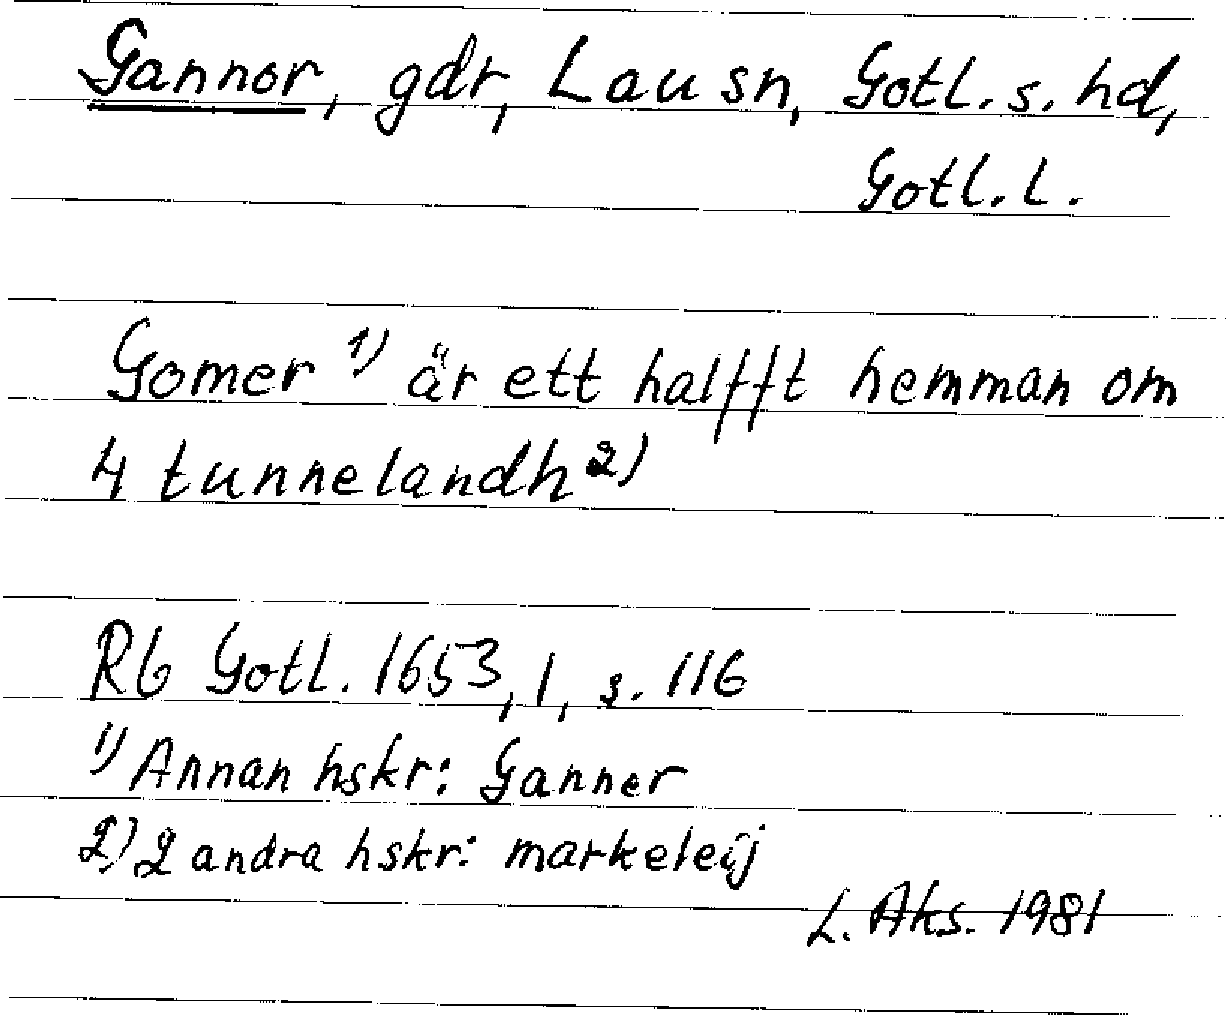 Gannor, gdr, Lau sn, Gotl. s. hd,
Gotl. l.
Gomer 1) är ett halfft hemman om
4 tunnelandh 2)
Rb Gotl. 1653, 1, s. 116
1) Annan hskr: Ganner
2) 2 andra hskr: markeleij
L. Aks. 1981